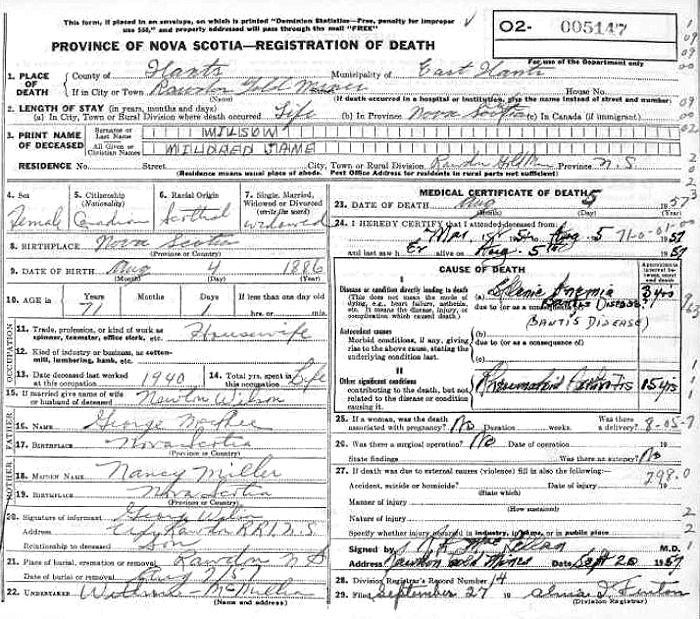 "This form, if placed in an envelope, on which is printed "Dominion Statistics—Free, penalty for improper
use $50," and properly addressed will pass through the mail "FREE"
O2- 005147
PROVINCE OF NOVA SCOTIA—REGISTRATION OF DEATH
For use of Dept. only
1. PLACE OF DEATH
County of Hants Municipality of East Hants
If in City or Town Rawdon Gold Mines House No.
(Name) (If death occurred in a hospital or institution, give the name instead of street and number)
2. LENGTH OF STAY (in years, months and days)
(a) In City, Town or Rural Division where death occurred Life (b) In Province Nova Scotia (c) In Canada (if immigrant)
3. PRINT NAME OF DECEASED
Surname or Last Name WILSON
All Given or Christian Names MILDRED JAME
RESIDENCE No. Street City, Town or Rural Division Rawdon Gold Mines Province N.S.
(Residence means usual place of abode. Post Office Address for residents in rural parts not sufficient)
4. Sex Female
5. Citizenship (Nationality) Canadian
6. Racial Origin Scottish
7. Single, Married, Widowed or Divorced (write the word) widowed
8. BIRTHPLACE Nova Scotia
(Province or Country)
9. DATE OF BIRTH Aug 4 1886
(Month) (Day) (Year)
10. AGE in Years 71 Months Days 1 If less than one day old hrs. or min.
OCCUPATION
11. Trade, profession, or kind of work as spinner, teamster, office clerk, etc. Housewife
12. Kind of industry or business, as cotton-mill, lumbering, bank, etc.
13. Date deceased last worked at this occupation 1940
14. Total yrs. spent in this occupation Life
15. If married give name of wife or husband of deceased Newton Wilson
FATHER
16. NAME George McPhee
17. BIRTHPLACE Nova Scotia
(Province or Country)
MOTHER
18. MAIDEN NAME Nancy Miller
19. BIRTHPLACE Nova Scotia
(Province or Country)
20. Signature of informant George Wilson
Address Rawdon RR1 N S
Relationship to deceased Son
21. Place of burial, cremation or removal Rawdon N S
Date of burial or removal Aug
22. UNDERTAKER McMillan
(Name and address)
MEDICAL CERTIFICATE OF DEATH
23. DATE OF DEATH Aug 5 1957
(Month) (Day) (Year)
24. I HEREBY CERTIFY that I attended deceased from:
Mar. 54 to Aug. 5 1957
71-0-01-00
and last saw h er alive on Aug. 5 1957
CAUSE OF DEATH
Approximate interval between onset and death
I
Disease or condition directly leading to death
(This does not mean the mode of dying, e.g., heart failure, asthenia, etc. It means the disease, injury or complication which caused death.)
(a) Splenic Anemia 3 yrs
due to (or as a consequence of) Bantis Disease
(BANTIS DISEASE)
Antecedent causes
Morbid conditions, if any, giving rise to the above cause, stating the underlying condition last.
(b)
due to (or as a consequence of)
(c)
II
Other significant conditions contributing to the death, but not related to the disease or condition causing it.
Rheumatoid Arthritis 15 yrs
25. If a woman, was the death associated with pregnancy? No Duration weeks. Was there a delivery? 8-05-9
26. Was there a surgical operation? No Date of operation 19
State findings Was there an autopsy? No
27. If death was due to external causes (violence) fill in also the following:— 298.0
Accident, suicide or homicide? Date of injury 19
(State which)
Manner of injury
(How sustained)
Nature of injury
Specify whether injury occurred in industry, in home, or in public place
Signed by M.D.
Address Rawdon Gold Mines Date Sept 20 1957
28. Division Registrar's Record Number 14
29. Filed September 27 19 Alma D. Fenton
(Division Registrar)